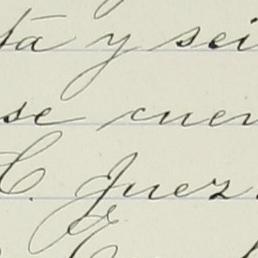 tá y sei
se cuen
C. Juez